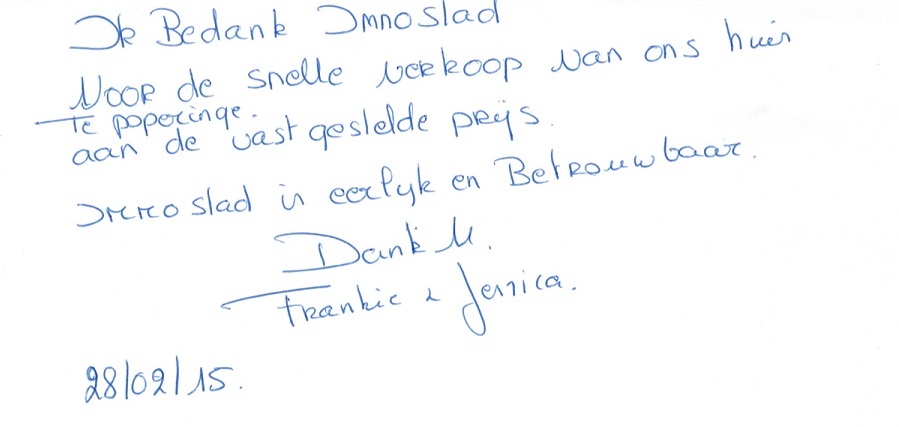 Ik Bedank Immoslad
Voor de snelle verkoop van ons huis
Te poperinge.
aan de vast gestelde prijs.
Immo slad is eerlyk en Betrouwbaar.
Dank U.
Frankie & Jessica.
28/02/15.